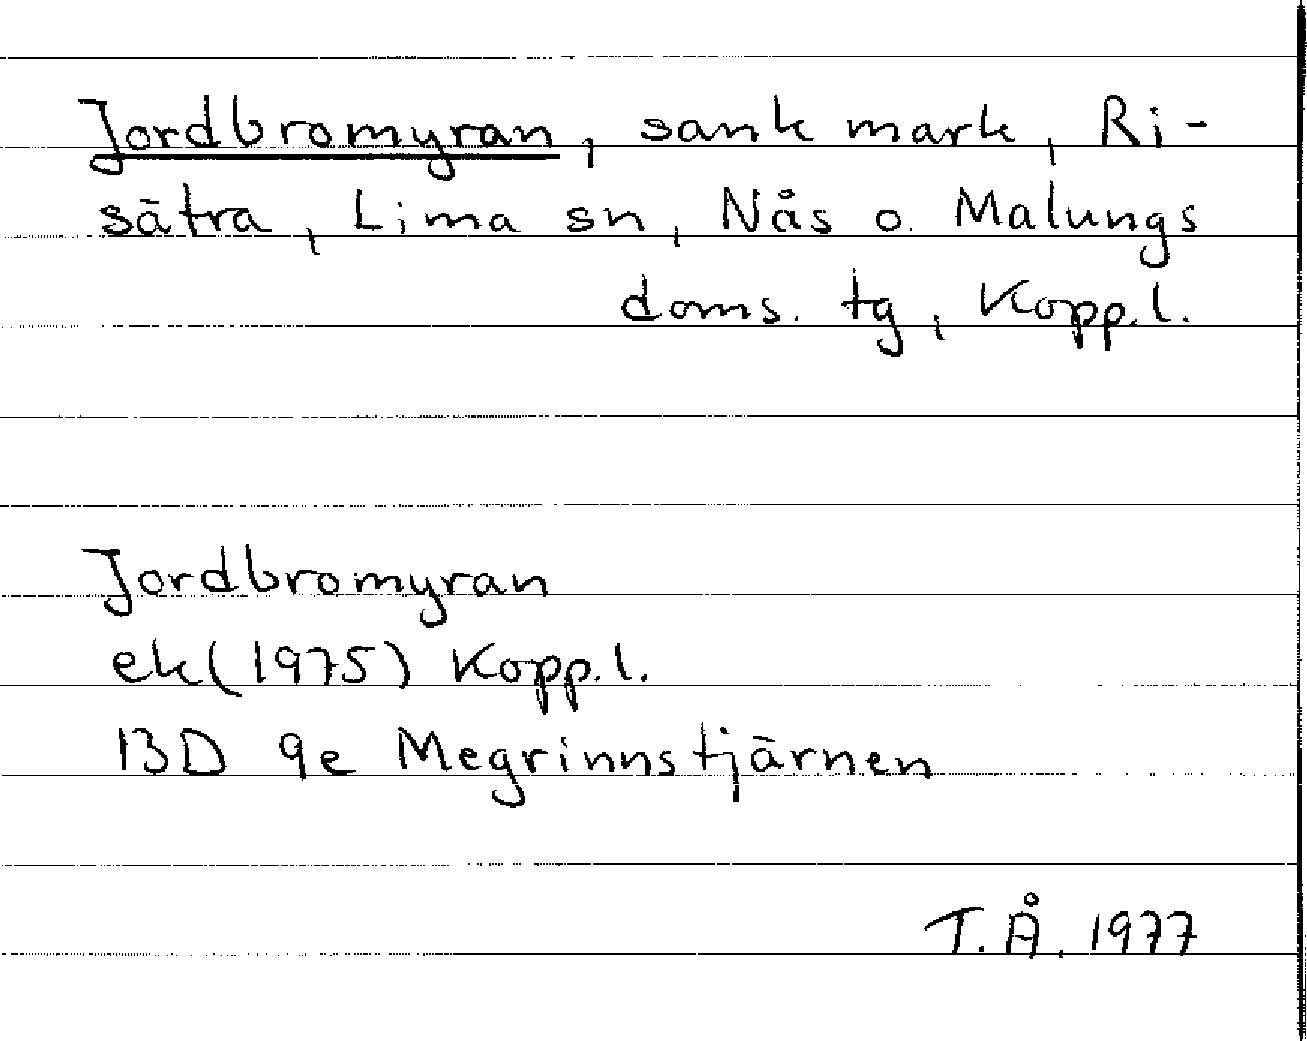 Jordbromyran, sank mark, Ri-
sätra, Lima sn, Nås o. Malungs
doms. tg, Kopp.l.
Jordbromyran
ek(1975) Kopp.l.
13D 9e Megrinnstjärnen
T.Å. 1977